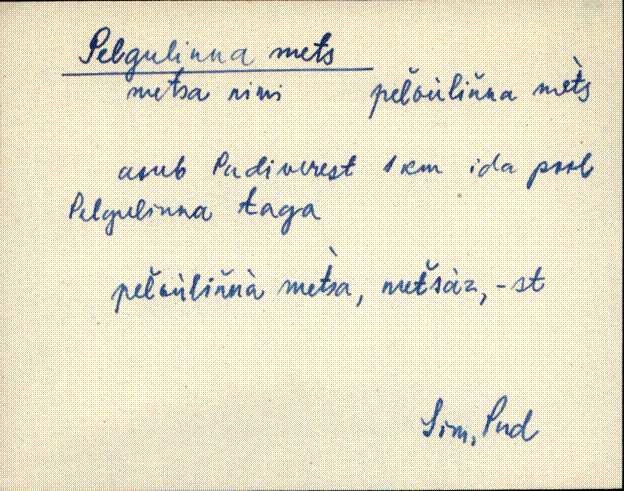 Pelgulinna mets
metsa nimi pel̆gùlin̆na mèts
asub Pudiverest 1 km ida pool
Pelgulinna taga
pel̆gùlin̆nà mètsa, mets̆àz, -st
Sim, Pud